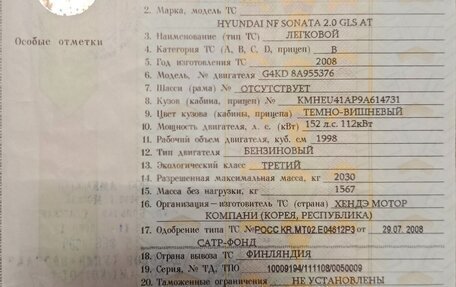 2. Марка, модель ТС
HYUNDAI NF SONATA 2.0 GLS AT
Особые отметки
3. Наименование (тип ТС) ЛЕГКОВОЙ
4. Категория ТС (А, В, С, D, прицеп) B
5. Год изготовления ТС 2008
6. Модель, № двигателя G4KD 8A955376
7. Шасси (рама) № ОТСУТСТВУЕТ
8. Кузов (кабина, прицеп) № KMHEU41AP9A614731
9. Цвет кузова (кабины, прицепа) ТЕМНО-ВИШНЕВЫЙ
10. Мощность двигателя, л. с. (кВт) 152 л.с. 112кВт
11. Рабочий объем двигателя, куб. см 1998
12. Тип двигателя БЕНЗИНОВЫЙ
13. Экологический класс ТРЕТИЙ
14. Разрешенная максимальная масса, кг 2030
15. Масса без нагрузки, кг 1567
16. Организация—изготовитель ТС (страна) ХЕНДЭ МОТОР
КОМПАНИ (КОРЕЯ, РЕСПУБЛИКА)
17. Одобрение типа ТС № РОСС KR.MT02.E04812P3 от 29.07.2008
САТР-ФОНД
18. Страна вывоза ТС ФИНЛЯНДИЯ
19. Серия, № ТД, ТПО 10009194/111108/0050009
20. Таможенные ограничения НЕ УСТАНОВЛЕНЫ